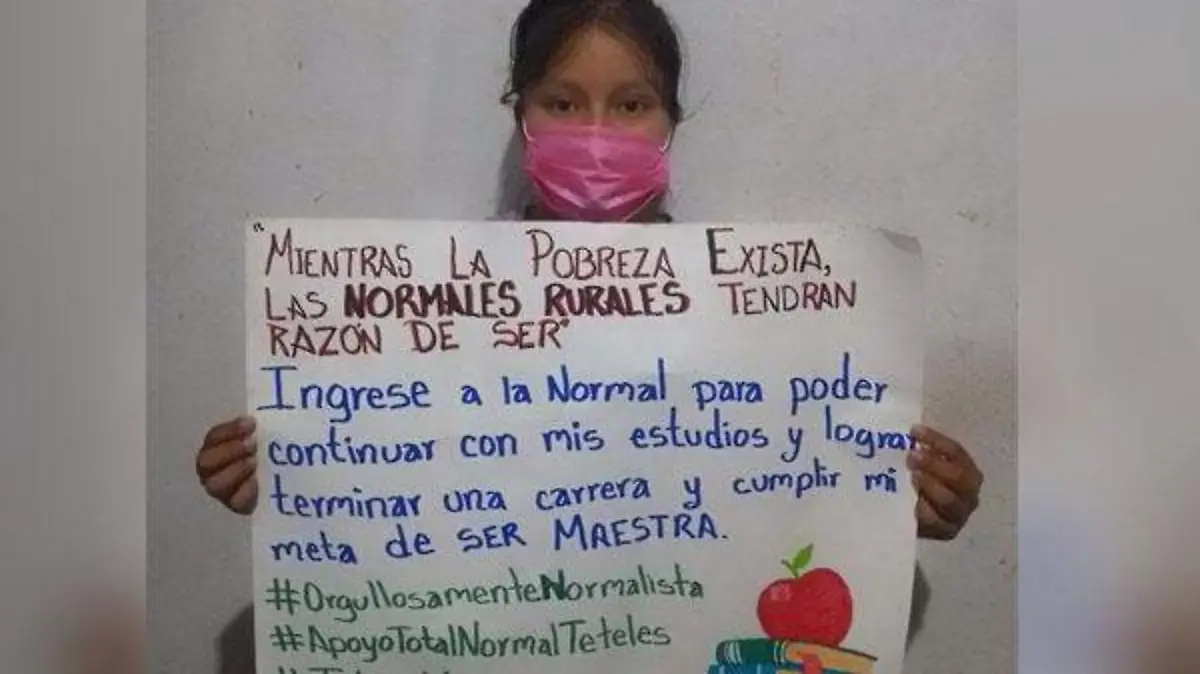 "MIENTRAS LA POBREZA EXISTA,
LAS NORMALES RURALES TENDRAN
RAZÓN DE SER"
Ingrese a la Normal para poder
continuar con mis estudios y lograr
terminar una carrera y cumplir mi
meta de SER MAESTRA.
#OrgullosamenteNormalista
#ApoyoTotalNormalTeteles